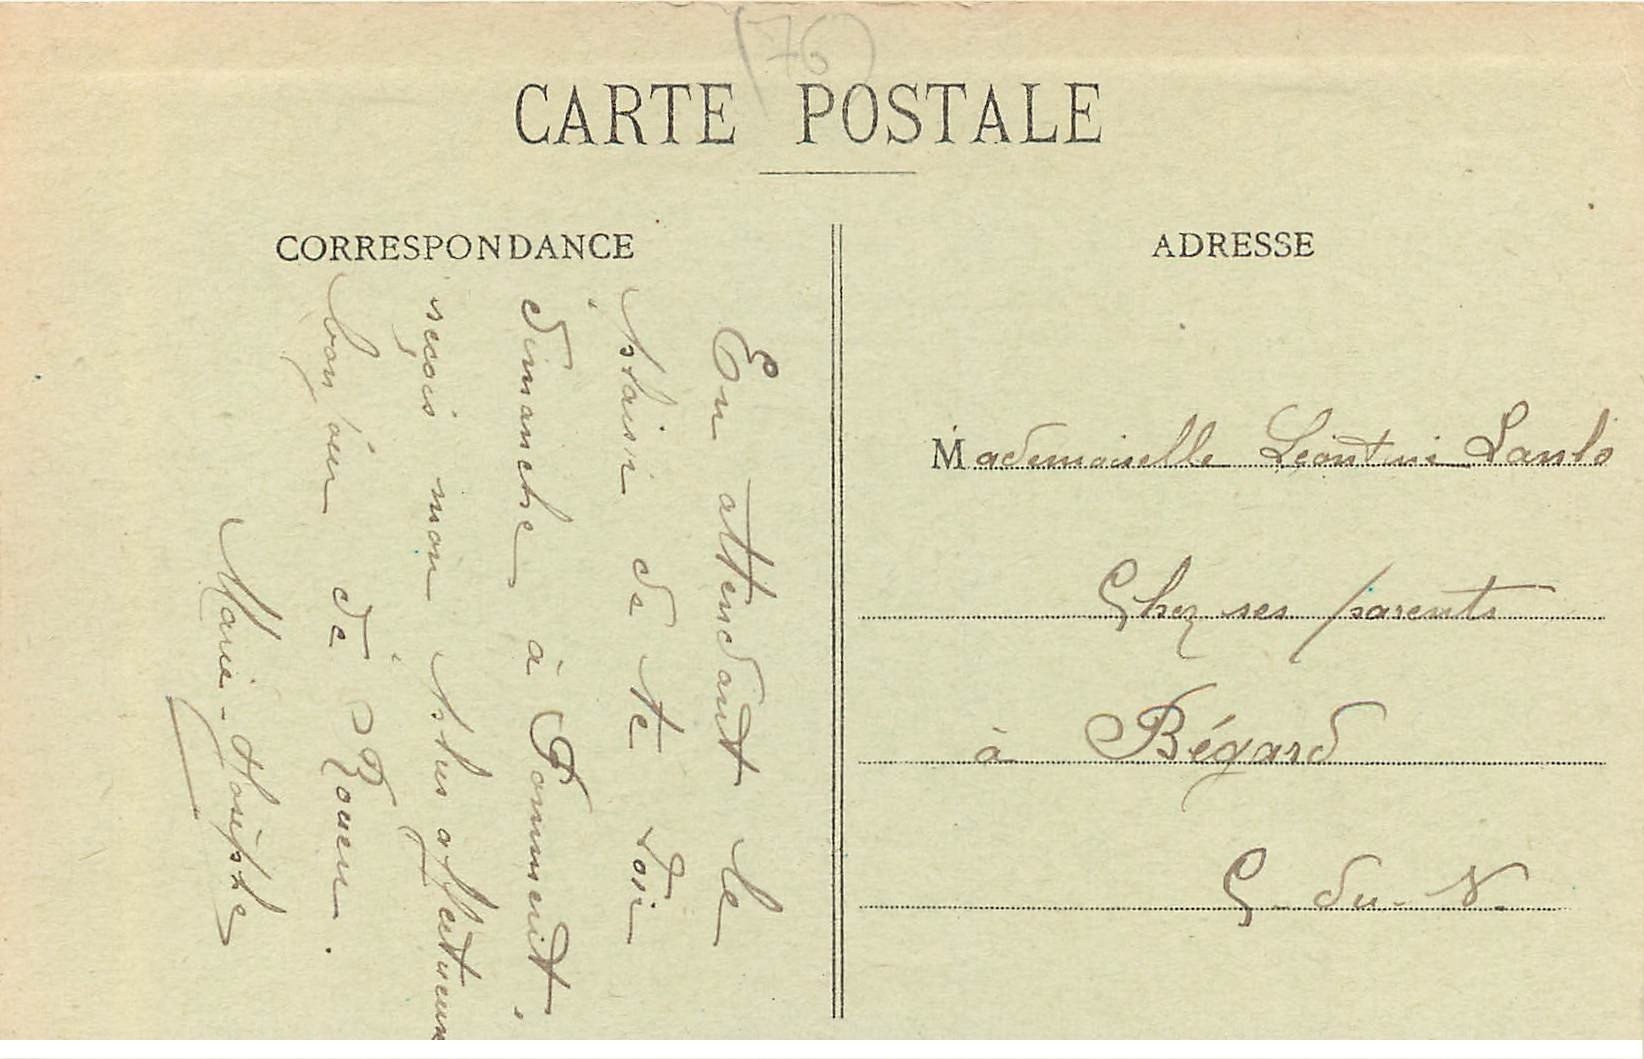 (76)
CARTE POSTALE
CORRESPONDANCE
En attendant le
plaisir de te voir
dimanche à Pommerit,
reçois mon plus affectueux
bonjour de Rouen.
Marie-Josèphe
ADRESSE
Mademoiselle Léontine
Chez ses parents
à Bégard
C. du. N.